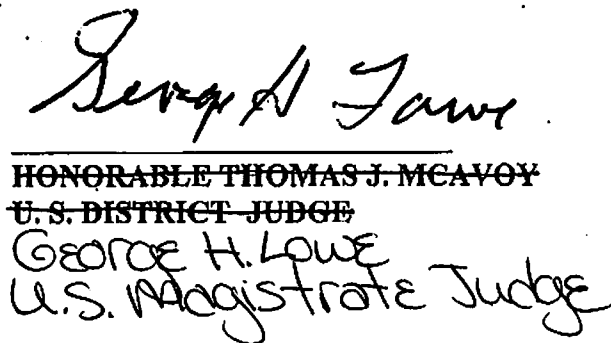 George H Lowe
HONORABLE THOMAS J. MCAVOY
U. S. DISTRICT JUDGE
George H. Lowe
U.S. Magistrate Judge